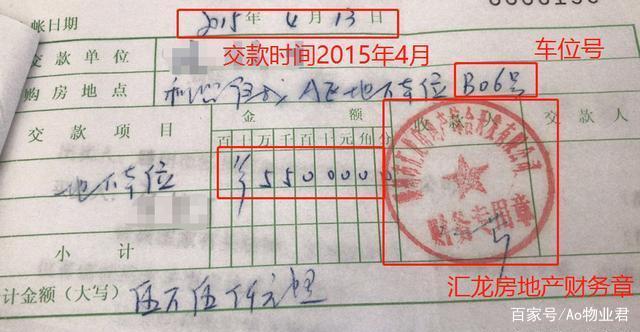 帐日期 2015 年 4 月 13 日
交款单位 交款时间2015年4月 车位号
购房地点 A区地下车位 B06号
交款项目 金额 收款人 交款人
百十万千百十元角分
地下车位 ¥5500000
财务专用章
小计
汇龙房地产财务章
计金额（大写） 伍万伍仟元整
百家号/Ao物业君